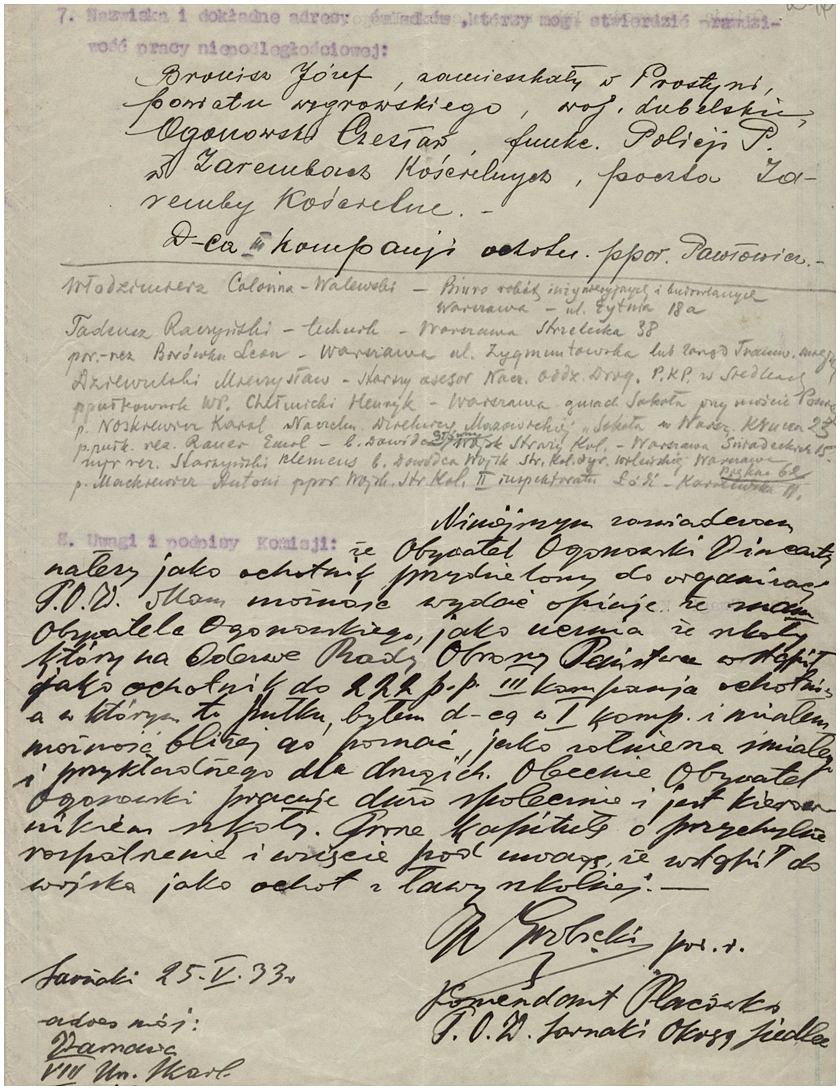 7. Nazwiska i dokładne adresy świadków, którzy mogą stwierdzić prawdzi-
wość pracy niepodległościowej:
Bronisz Józef, zamieszkały w Prostyni,
powiatu węgrowskiego, woj. lubelskie,
Ogonowski Czesław, funkc. Policji P.
w Zarembach Kościelnych, poczta Za-
remby Kościelne. -
D-ca III kompanji ochotn. ppor. Pawłowicz. -
Włodzimierz Colonna-Walewski - Biuro robót inżynieryjnych i budowlanych
Warszawa - ul. Żytnia 18a
Tadeusz Raczyński - technik - Warszawa Strzelecka 38
por.-rez Borówko Leon - Warszawa ul. Zygmuntowska lub Zarząd Tramw.
Dziewulski Mieczysław - Starszy asesor Nacz. oddz. Drog. P.K.P. w Siedlcach
ppułkownik WP. Chełmicki Henryk - Warszawa gmach Sokoła przy moście
p. Noskiewicz Karol Naczeln. Dzielnicy Mazowieckiej "Sokoła" w Warsz. 23
p.pułk. rez. Rauer Emil - b. Dowódca Wojsk Straży Kol. - Warszawa Śniadeckich 15
mjr rez. Skarzyński Klemens b. Dowódca Wojsk. Str. Kol. dyr. wileńskiej Warszawa
Piękna 62
p. Mackiewicz Antoni ppor Wojsk. Str. Kol. II inspektoratu Łódź -
8. Uwagi i podpisy Komisji:
Niniejszym zaświadczam
że Obywatel Ogonowski Wincenty
należy jako ochotnik przydzielony do organizacji
P.O.W. Mam możność wydać opinję że znam
Obywatela Ogonowskiego, jako ucznia ze szkoły
który na Odezwę Rady Obrony Państwa wstąpił
jako ochotnik do 222 p.p. III kompanja ochotnicza
a w którym to pułku, byłem d-cą w I komp. i miałem
możność bliżej go poznać, jako żołnierza śmiałego
i przykładnego dla drugich. Obecnie Obywatel
Ogonowski pracuje dużo społecznie i jest kierow-
nikiem szkoły. Proszę Kapitułę o przychylne
rozpatrzenie i wzięcie pod uwagę, że wstąpił do
wojska jako ochot z ławy szkolnej. -
por. r.
Sarnaki 25.V.33r
Komendant Placówki
P.O.W. Sarnaki Okręg Siedlce
adres mój: